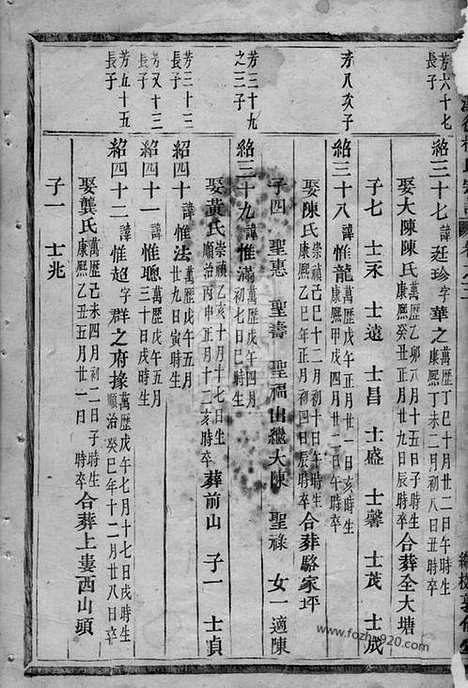 芳六十七長子
紹三十七 諱廷珍 字華之 萬歷丁巳十月廿二日午時生 康熙丁未二月初八日丑時卒
娶大陳陳氏 萬歷乙卯八月十五日子時生 康熙癸丑正月廿九日辰時卒 合葬全大塘
子七 士永 士遠 士昌 士盛 士馨 士茂 士成
芳八亥子
紹三十八 諱惟龍 萬歷戊午正月廿一日亥時生 康熙甲戌四月廿二日午時卒
娶陳氏 崇禎己巳十二月初十日午時生 康熙乙巳年四月日辰時卒 合葬駱家坪
子四 聖惠 聖壽 聖福出繼大陳 聖祿 女一適陳
芳三十九之三子
紹三十九 諱惟滿 萬歷戊午四月初七日巳時生
娶黃氏 崇禎乙亥十月十七日生 順治丙申正月十二亥時卒 葬前山 子一 士貞
芳三十三長子
紹四十 諱惟法 萬歷戊午五月廿九日寅時生
芳又十三長子
紹四十一 諱惟聰 萬歷戊午五月三十日戌時生
芳五十五長子
紹四十二 諱惟超 字群之府掾 萬歷戊午七月十七日戌時生 順治癸巳年十二月廿八日卒
娶龔氏 萬歷己未四月初二日子時生 康熙乙丑五月廿一日時卒 合葬上婁西山頭
子一 士兆
www.fozhu920.com